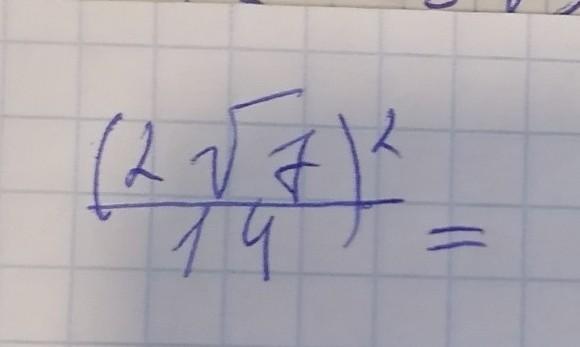 (2√7)²
14 =